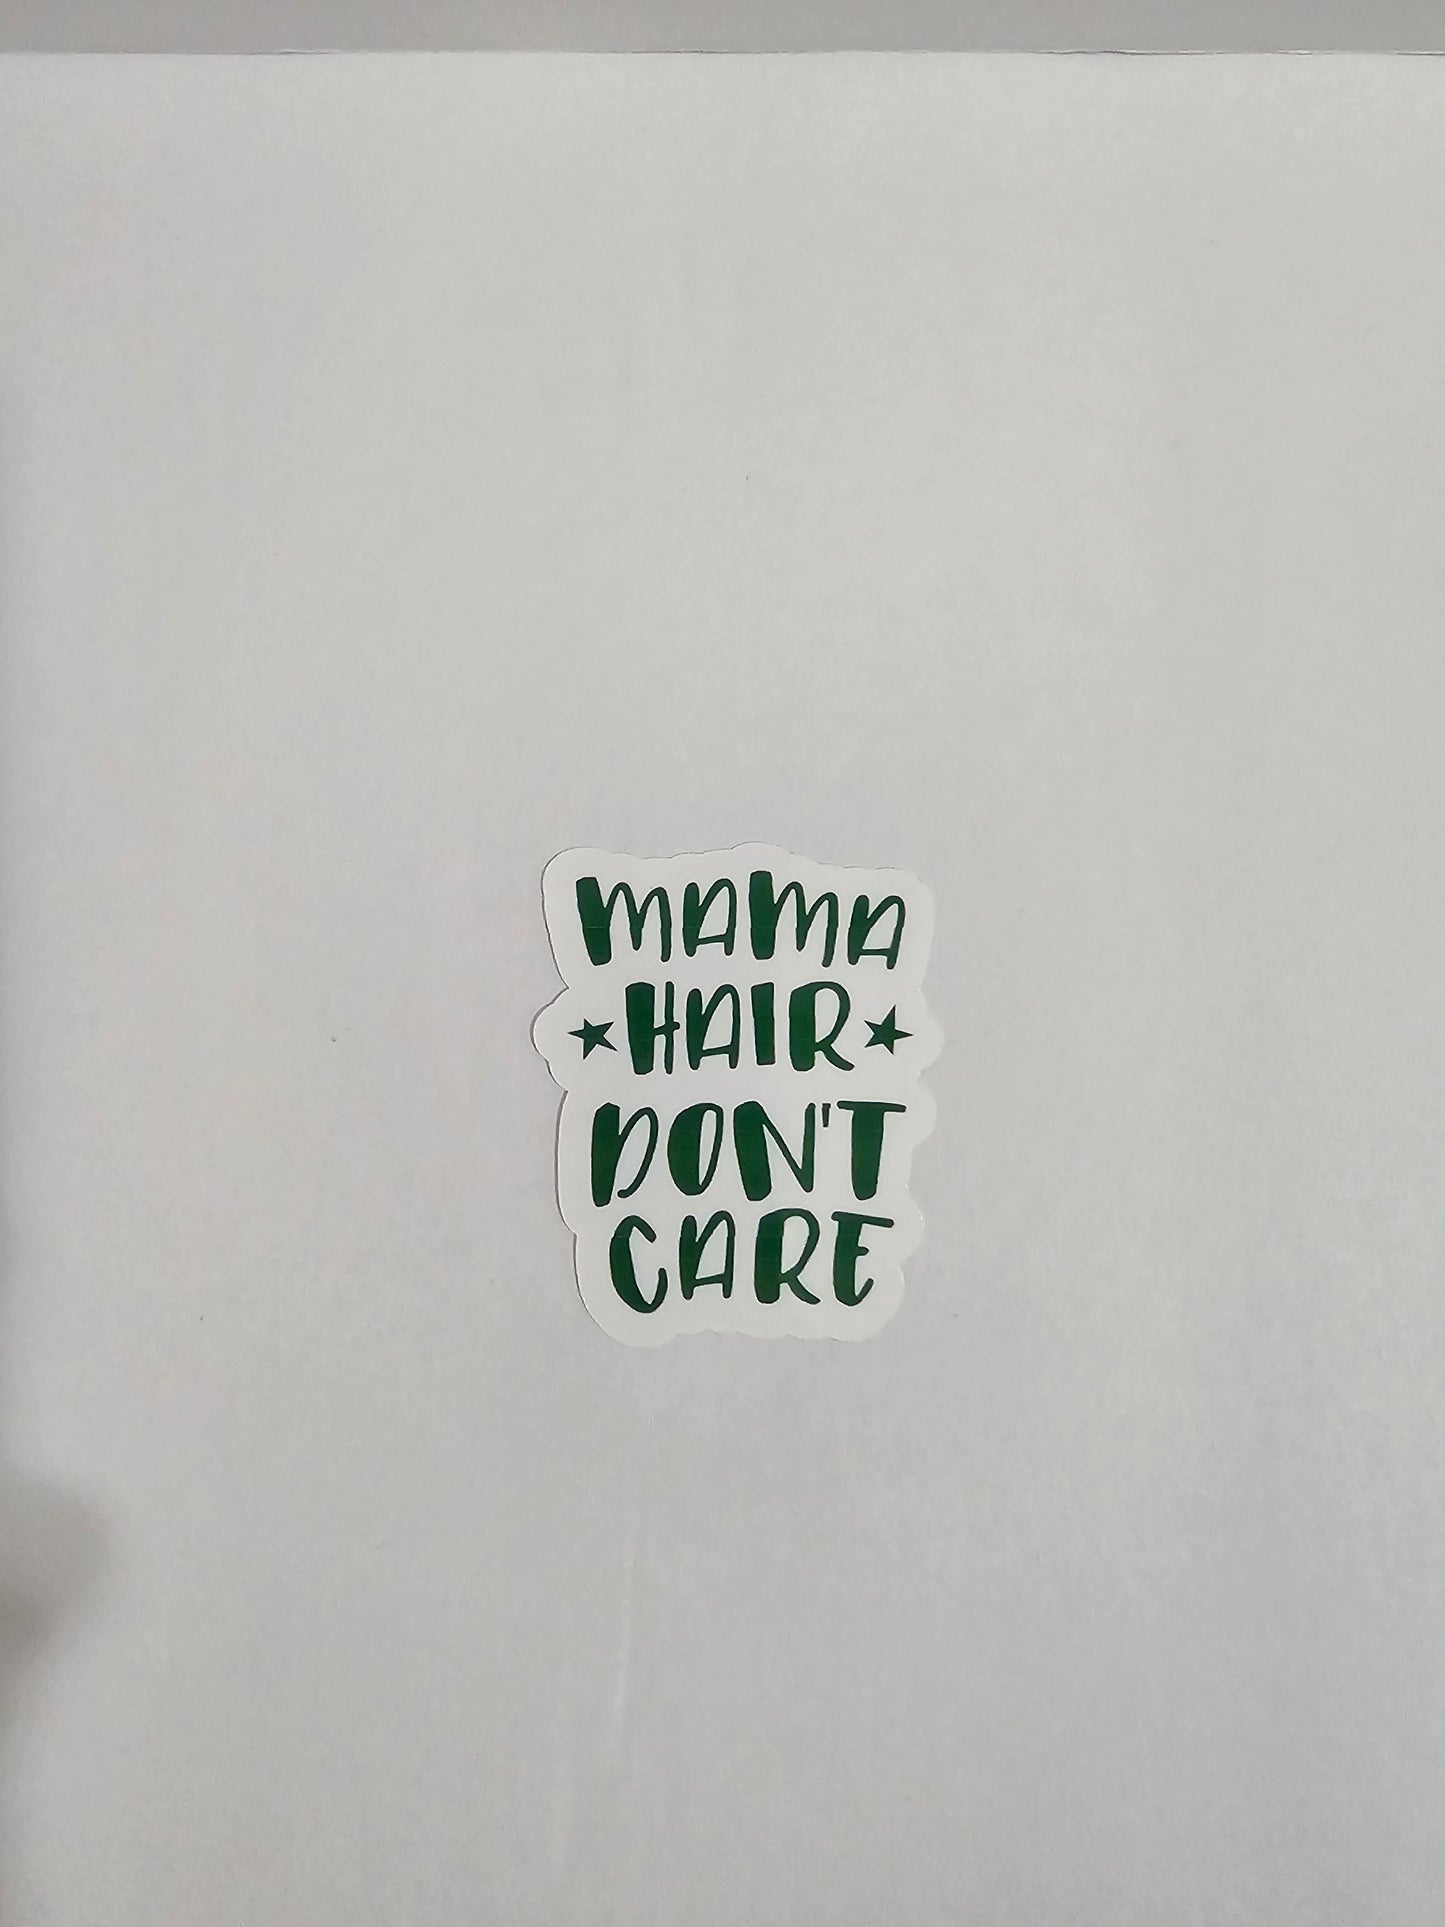 MAMA
★HAIR★
DON'T
CARE